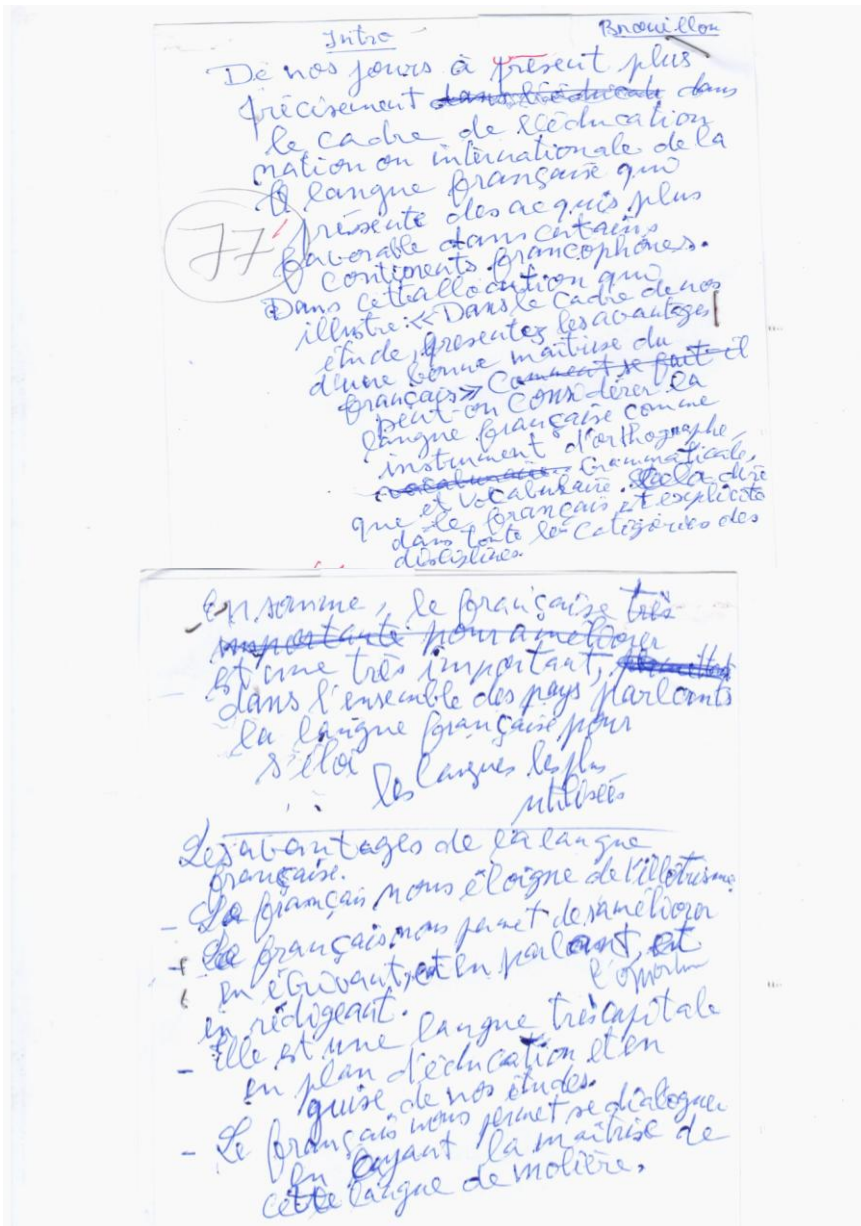 Intro
Brouillon
De nos jours à présent plus
précisement dans l'éducati dans
le cadre de l'éducation
nation ou internationale de la
langue française qui
présente des acquis plus
favorable dans certains
continents francophones.
77
Dans cette allocution qui
illustre : « Dans le cadre de nos
étude, presentez les avantages
d'une bonne maîtrise du
français » Comment se fait-il
peut-on considérer la
langue française comme
instrument d'orthographe,
vocabunaire Grammaticale,
et vocabulaire. à dire
que le français est explicite
dans toute les catégories des
disciplines.
En somme, le française très
importante pour améliorer
est une très important,
dans l'ensemble des pays parlants
la langue française pour
s'éloi les langues les plus
utilisées
Les avantages de la langue
française.
- Le français nous éloigne de l'illetrisme
- Le français nous permet de s'améliorer
en écrivant, et en parlant, et
en rédigeant.
- Elle est une langue très capitale
en plan d'éducation et en
guise de nos études.
- Le français nous permet se dialoguer
en ayant la maîtrise de
cette langue de molière.